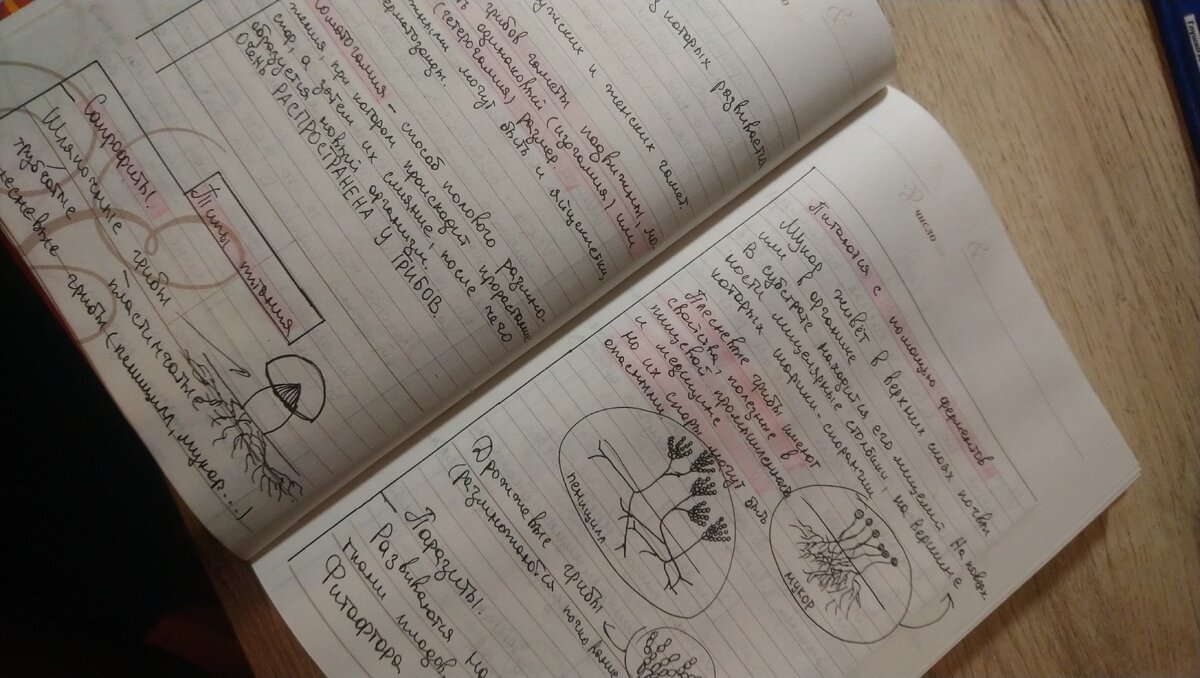 из которых развивается
мужских и женских гамет.
грибов гаметы подвижны, мо-
одинаковый (изогамия) или
(гетерогамия) размер.
могут быть и яйцеклетки,
сперматозоиды.
Соматогамия - способ полового размно-
жения, при котором происходит прорастание
спор, а затем их слияние, после чего
образуется новый организм.
ОЧЕНЬ РАСПРОСТРАНЕНА У ГРИБОВ.
Типы питания
Сапрофиты.
Шляпочные грибы
трубчатые пластинчатые
плесневые грибы (пеницилл, мукор...)
число
Питаются с помощью ферментов
Мукор живёт в верхних слоях почвы
или в органике.
В субстрате находится его мицелий. На поверх
ности мицелярные столбики, на вершине
которых шарики спорангии
Плесневые грибы имеют
свойства, полезные в
пищевой промышленности
и медицине
но их споры могут быть
опасными
мукор
пеницилл
Дрожжевые грибы
(размножаются почкование
Паразиты.
Развиваются на
ткани плодов,
Фитофтора